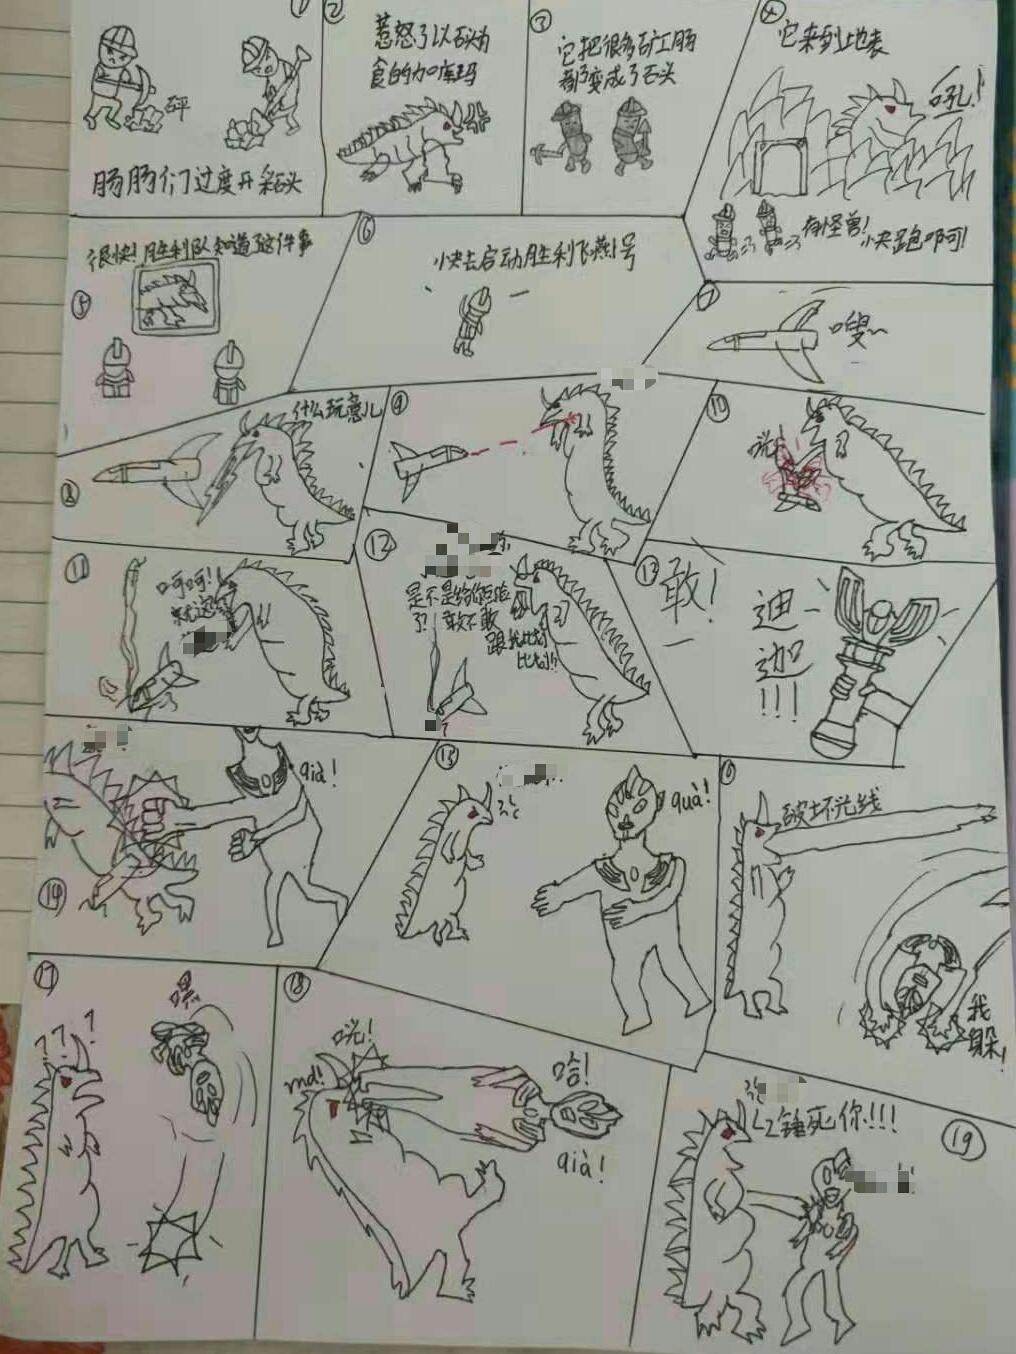 1
砰
肠肠们过度开采石头
2
惹怒了以石头为
食的加库玛
3
它把很多矿工肠
都变成了石头
4
它来到地表
吼!
有怪兽!
快跑啊!
5
很快!胜利队知道了这件事
6
快去启动胜利飞燕1号
7
嗖~
8
什么玩意儿
9
10
11
呵呵!!
就这
12
是不是给你
了?敢不敢
跟我比划
比划!!
13
敢!
迪
迦
!!!
14
qià!
15
quà!
16
破坏光线
我
躲!
17
???
嘿
18
咣!
md!
哈!
qià!
19
锤死你!!!